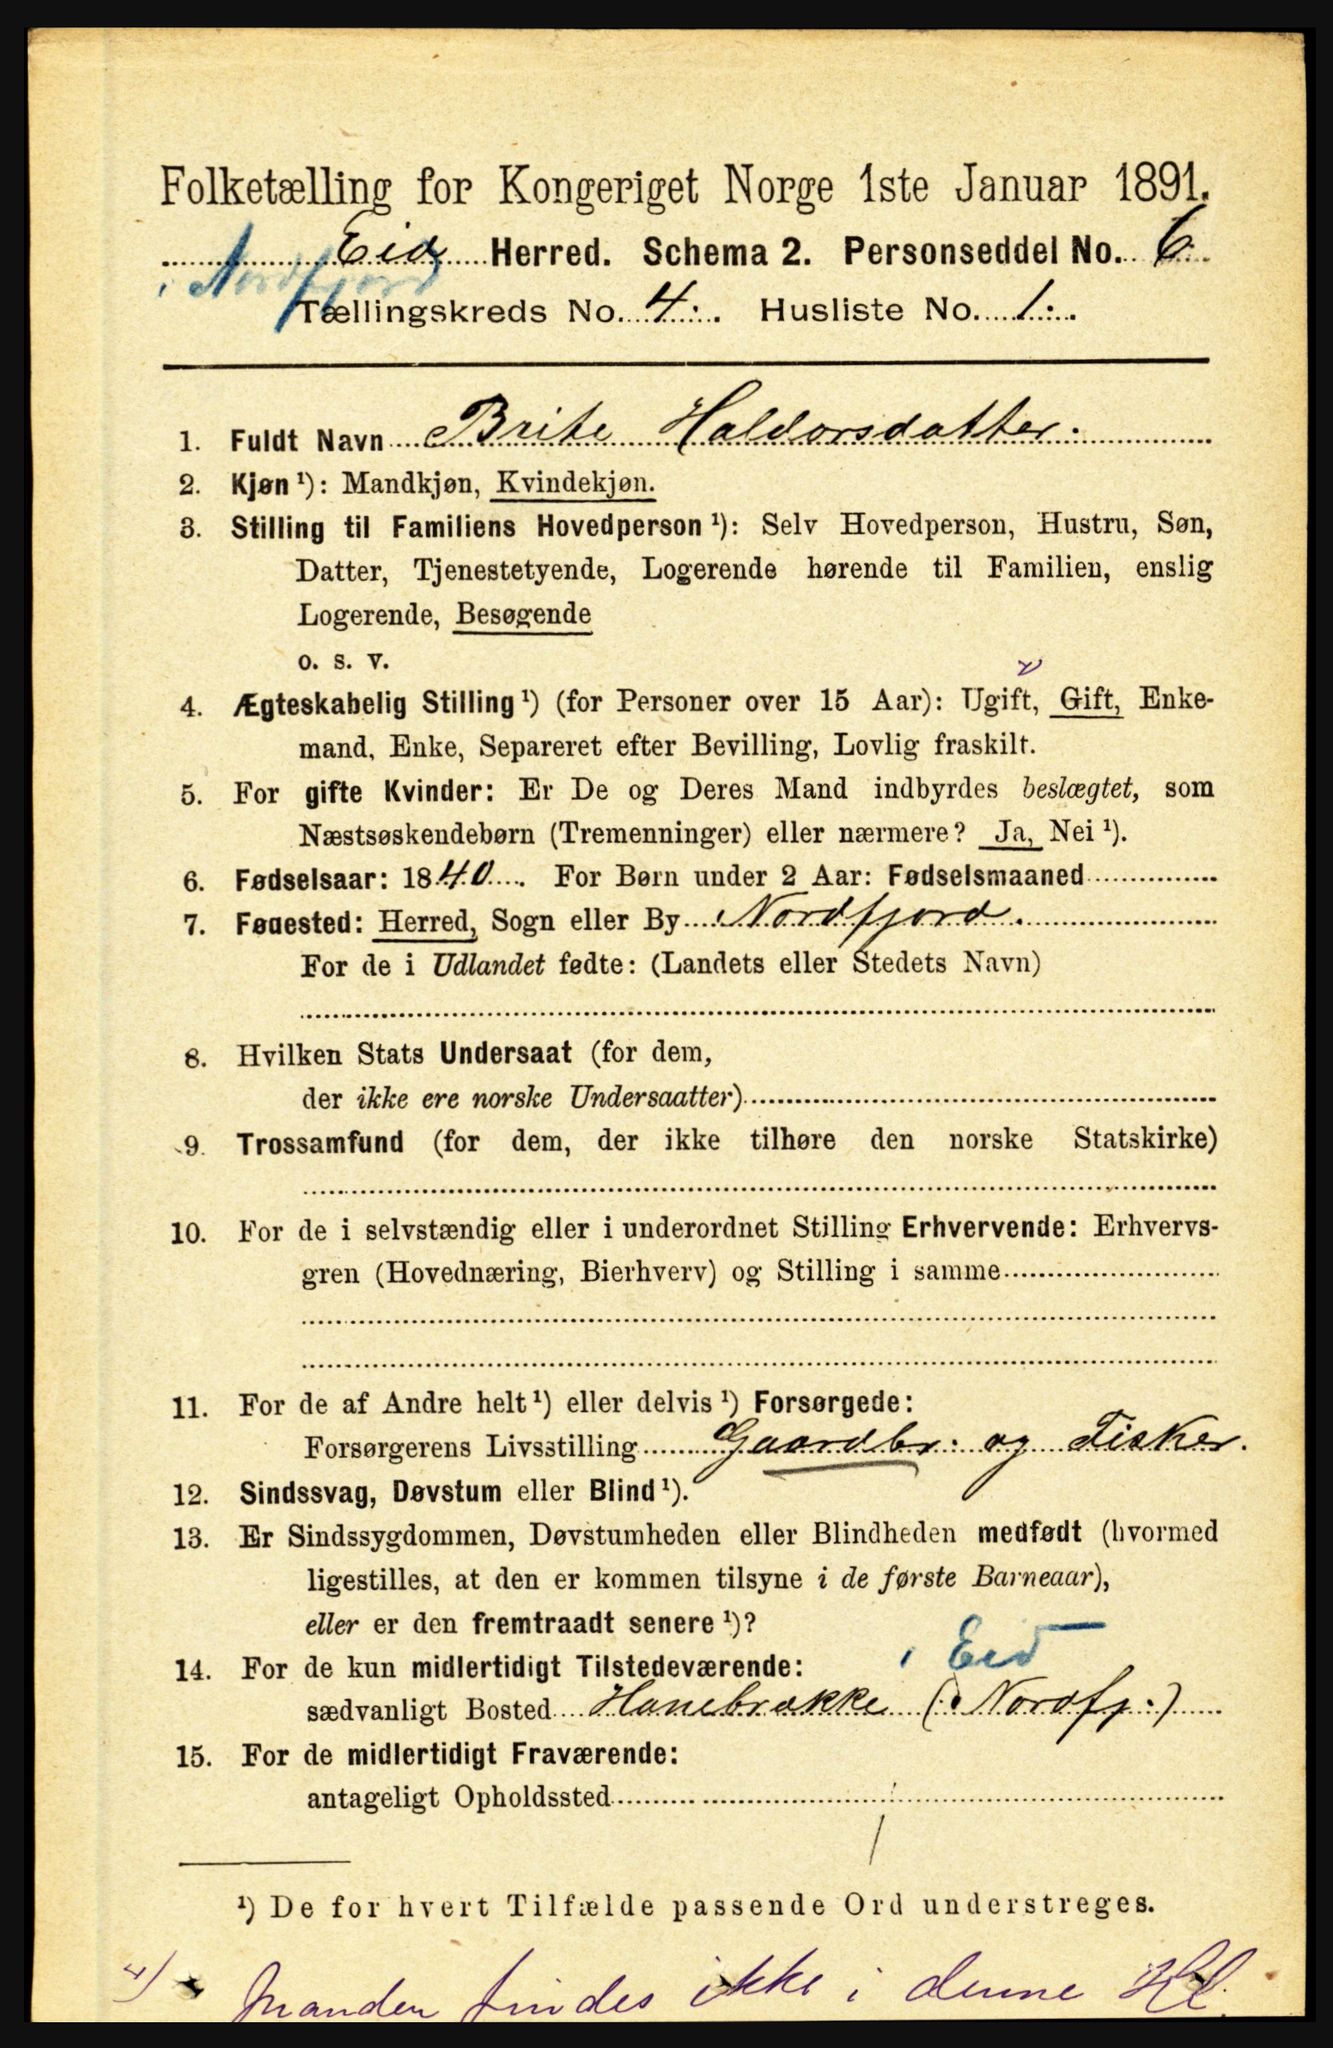 Folketælling for Kongeriget Norge 1ste Januar 1891.
Eid Herred. Schema 2. Personseddel No. 6
i Nordfjord
Tællingskreds No. 4. Husliste No. 1.
1. Fuldt Navn Brite Haldorsdatter.
2. Kjøn ¹): Mandkjøn, Kvindekjøn.
3. Stilling til Familiens Hovedperson ¹): Selv Hovedperson, Hustru, Søn,
Datter, Tjenestetyende, Logerende hørende til Familien, enslig
Logerende, Besøgende
o. s. v.
v
4. Ægteskabelig Stilling ¹) (for Personer over 15 Aar): Ugift, Gift, Enke-
mand, Enke, Separeret efter Bevilling, Lovlig fraskilt.
5. For gifte Kvinder: Er De og Deres Mand indbyrdes beslægtet, som
Næstsøskendebørn (Tremenninger) eller nærmere? Ja, Nei ¹).
6. Fødselsaar: 1840. For Børn under 2 Aar: Fødselsmaaned
7. Føuested: Herred, Sogn eller By Nordfjord.
For de i Udlandet fødte: (Landets eller Stedets Navn)
8. Hvilken Stats Undersaat (for dem,
der ikke ere norske Undersaatter)
9. Trossamfund (for dem, der ikke tilhøre den norske Statskirke)
10. For de i selvstændig eller i underordnet Stilling Erhvervende: Erhvervs-
gren (Hovednæring, Bierhverv) og Stilling i samme
11. For de af Andre helt ¹) eller delvis ¹) Forsørgede:
Forsørgerens Livsstilling Gaardbr. og Fisker.
12. Sindssvag, Døvstum eller Blind ¹).
13. Er Sindssygdommen, Døvstumheden eller Blindheden medfødt (hvormed
ligestilles, at den er kommen tilsyne i de første Barneaar),
eller er den fremtraadt senere ¹)?
i Eid
14. For de kun midlertidigt Tilstedeværende:
sædvanligt Bosted Hanebrække (Nordfj.)
15. For de midlertidigt Fraværende:
antageligt Opholdssted
¹) De for hvert Tilfælde passende Ord understreges.
4) Manden findes ikke i denne Hl.